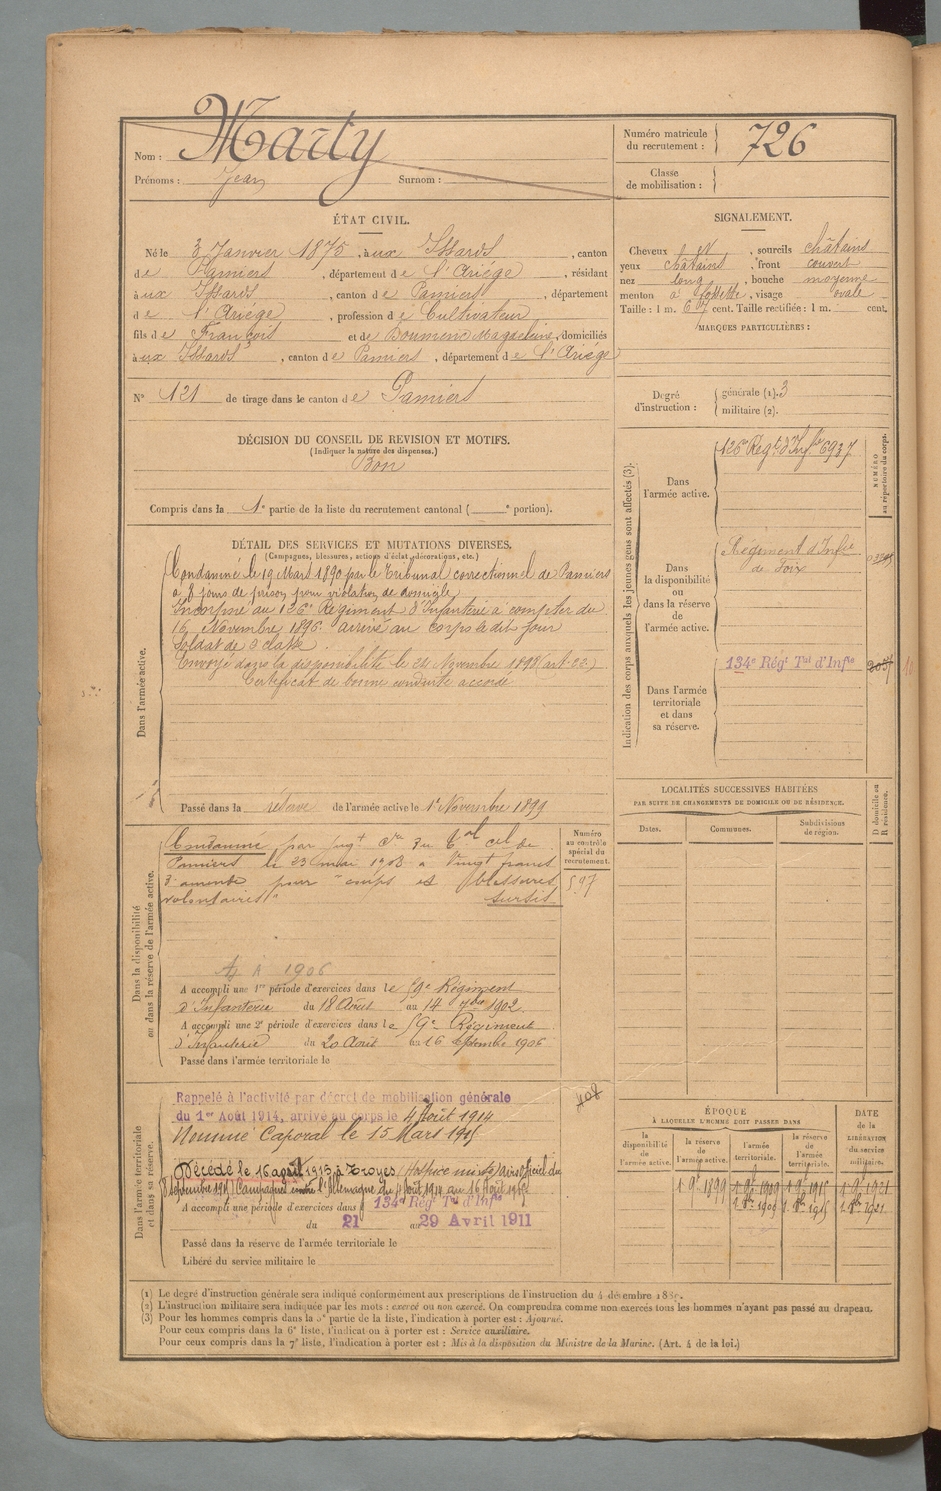 Nom : Marty
Prénoms : Jean Surnom :
Numéro matricule du recrutement : 726
Classe de mobilisation :
ÉTAT CIVIL.
Né le 3 Janvier 1875, à ux Issards, canton
de Pamiers, département de l'Ariége, résidant
à ux Issards, canton de Pamiers, département
de l'Ariége, profession de Cultivateur,
fils de François et de Doumenc Magdeleine, domiciliés
à ux Issards, canton de Pamiers, département de l'Ariége
N° 121 de tirage dans le canton de Pamiers
SIGNALEMENT.
Cheveux et, sourcils châtains
yeux châtains, front couvert
nez long, bouche moyenne
menton à fossette, visage ovale
Taille : 1 m. cent. Taille rectifiée : 1 m. cent.
MARQUES PARTICULIÈRES :
Degré d'instruction : générale (1). 3
militaire (2).
DÉCISION DU CONSEIL DE REVISION ET MOTIFS.
(Indiquer la nature des dispenses.)
Bon
Compris dans la 1e partie de la liste du recrutement cantonal ( e portion).
DÉTAIL DES SERVICES ET MUTATIONS DIVERSES.
(Campagnes, blessures, actions d'éclat, décorations, etc.)
Dans l'armée active.
Condamné le 19 Mars 1890 par le Tribunal correctionnel de Pamiers
à 8 jours de prison pour violation de domicile
Incorporé au 126e Régiment d'Infanterie à compter du
16 Novembre 1896. arrivé au corps le dit jour
Soldat de 2 classe.
Envoyé dans la disponibilité le 24 Novembre 1898 (art. 22.)
Certificat de bonne conduite accordé
Passé dans la réserve de l'armée active le 1er Novembre 1899
Indication des corps auxquels les jeunes gens sont affectés (3).
NUMÉRO au répertoire du corps.
Dans l'armée active. 126e Régt d'Infie 6937
Dans la disponibilité ou dans la réserve de l'armée active. Régiment d'Infie de Foix
Dans l'armée territoriale et dans sa réserve. 134e Régt Tal d'Infie
LOCALITÉS SUCCESSIVES HABITÉES
PAR SUITE DE CHANGEMENTS DE DOMICILE OU DE RÉSIDENCE.
Dates. Communes. Subdivisions de région. D domicile ou R résidence.
Dans la disponibilité ou dans la réserve de l'armée active.
Numéro au contrôle spécial du recrutement.
597
Condamné par jugt du Tal cel de
Pamiers le 23 mai 1903 à Vingt francs
d'amende pour "coups et blessures
volontaires" sursis
1906
A accompli une 1re période d'exercices dans le 59e Régiment
d'Infanterie du 18 Août au 14 7bre 1902.
A accompli une 2e période d'exercices dans le 59e Régiment
d'Infanterie du 20 Août au 16 Septembre 1906
Passé dans l'armée territoriale le
Dans l'armée territoriale et dans sa réserve.
Rappelé à l'activité par décret de mobilisation générale
du 1er Août 1914, arrivé au corps le 4 Août 1914
Nommé Caporal le 15 Mars 1915
Décédé le 16 1915 à Troyes (Hospice mixte) avis officiel du
8 septembre 1915) Campagnes contre l'Allemagne du 4 Août 1914 au 16 Août 1915
134e Régt Tal d'Infie
A accompli une période d'exercices dans
du 21 au 29 Avril 1911
Passé dans la réserve de l'armée territoriale le
Libéré du service militaire le
ÉPOQUE
À LAQUELLE L'HOMME DOIT PASSER DANS
la disponibilité de l'armée active. la réserve de l'armée active. l'armée territoriale. la réserve de l'armée territoriale.
DATE de la LIBÉRATION du service militaire.
1 9bre 1899 1 9bre 1909 1 9bre 1915 1 9bre 1921
1 8bre 1909 1 8bre 1915 1 8bre 1921
(1) Le degré d'instruction générale sera indiqué conformément aux prescriptions de l'instruction du 4 décembre 1889.
(2) L'instruction militaire sera indiquée par les mots : exercé ou non exercé. On comprendra comme non exercés tous les hommes n'ayant pas passé au drapeau.
(3) Pour les hommes compris dans la 5e partie de la liste, l'indication à porter est : Ajourné.
Pour ceux compris dans la 6e liste, l'indication à porter est : Service auxiliaire.
Pour ceux compris dans la 7e liste, l'indication à porter est : Mis à la disposition du Ministre de la Marine. (Art. 4 de la loi.)